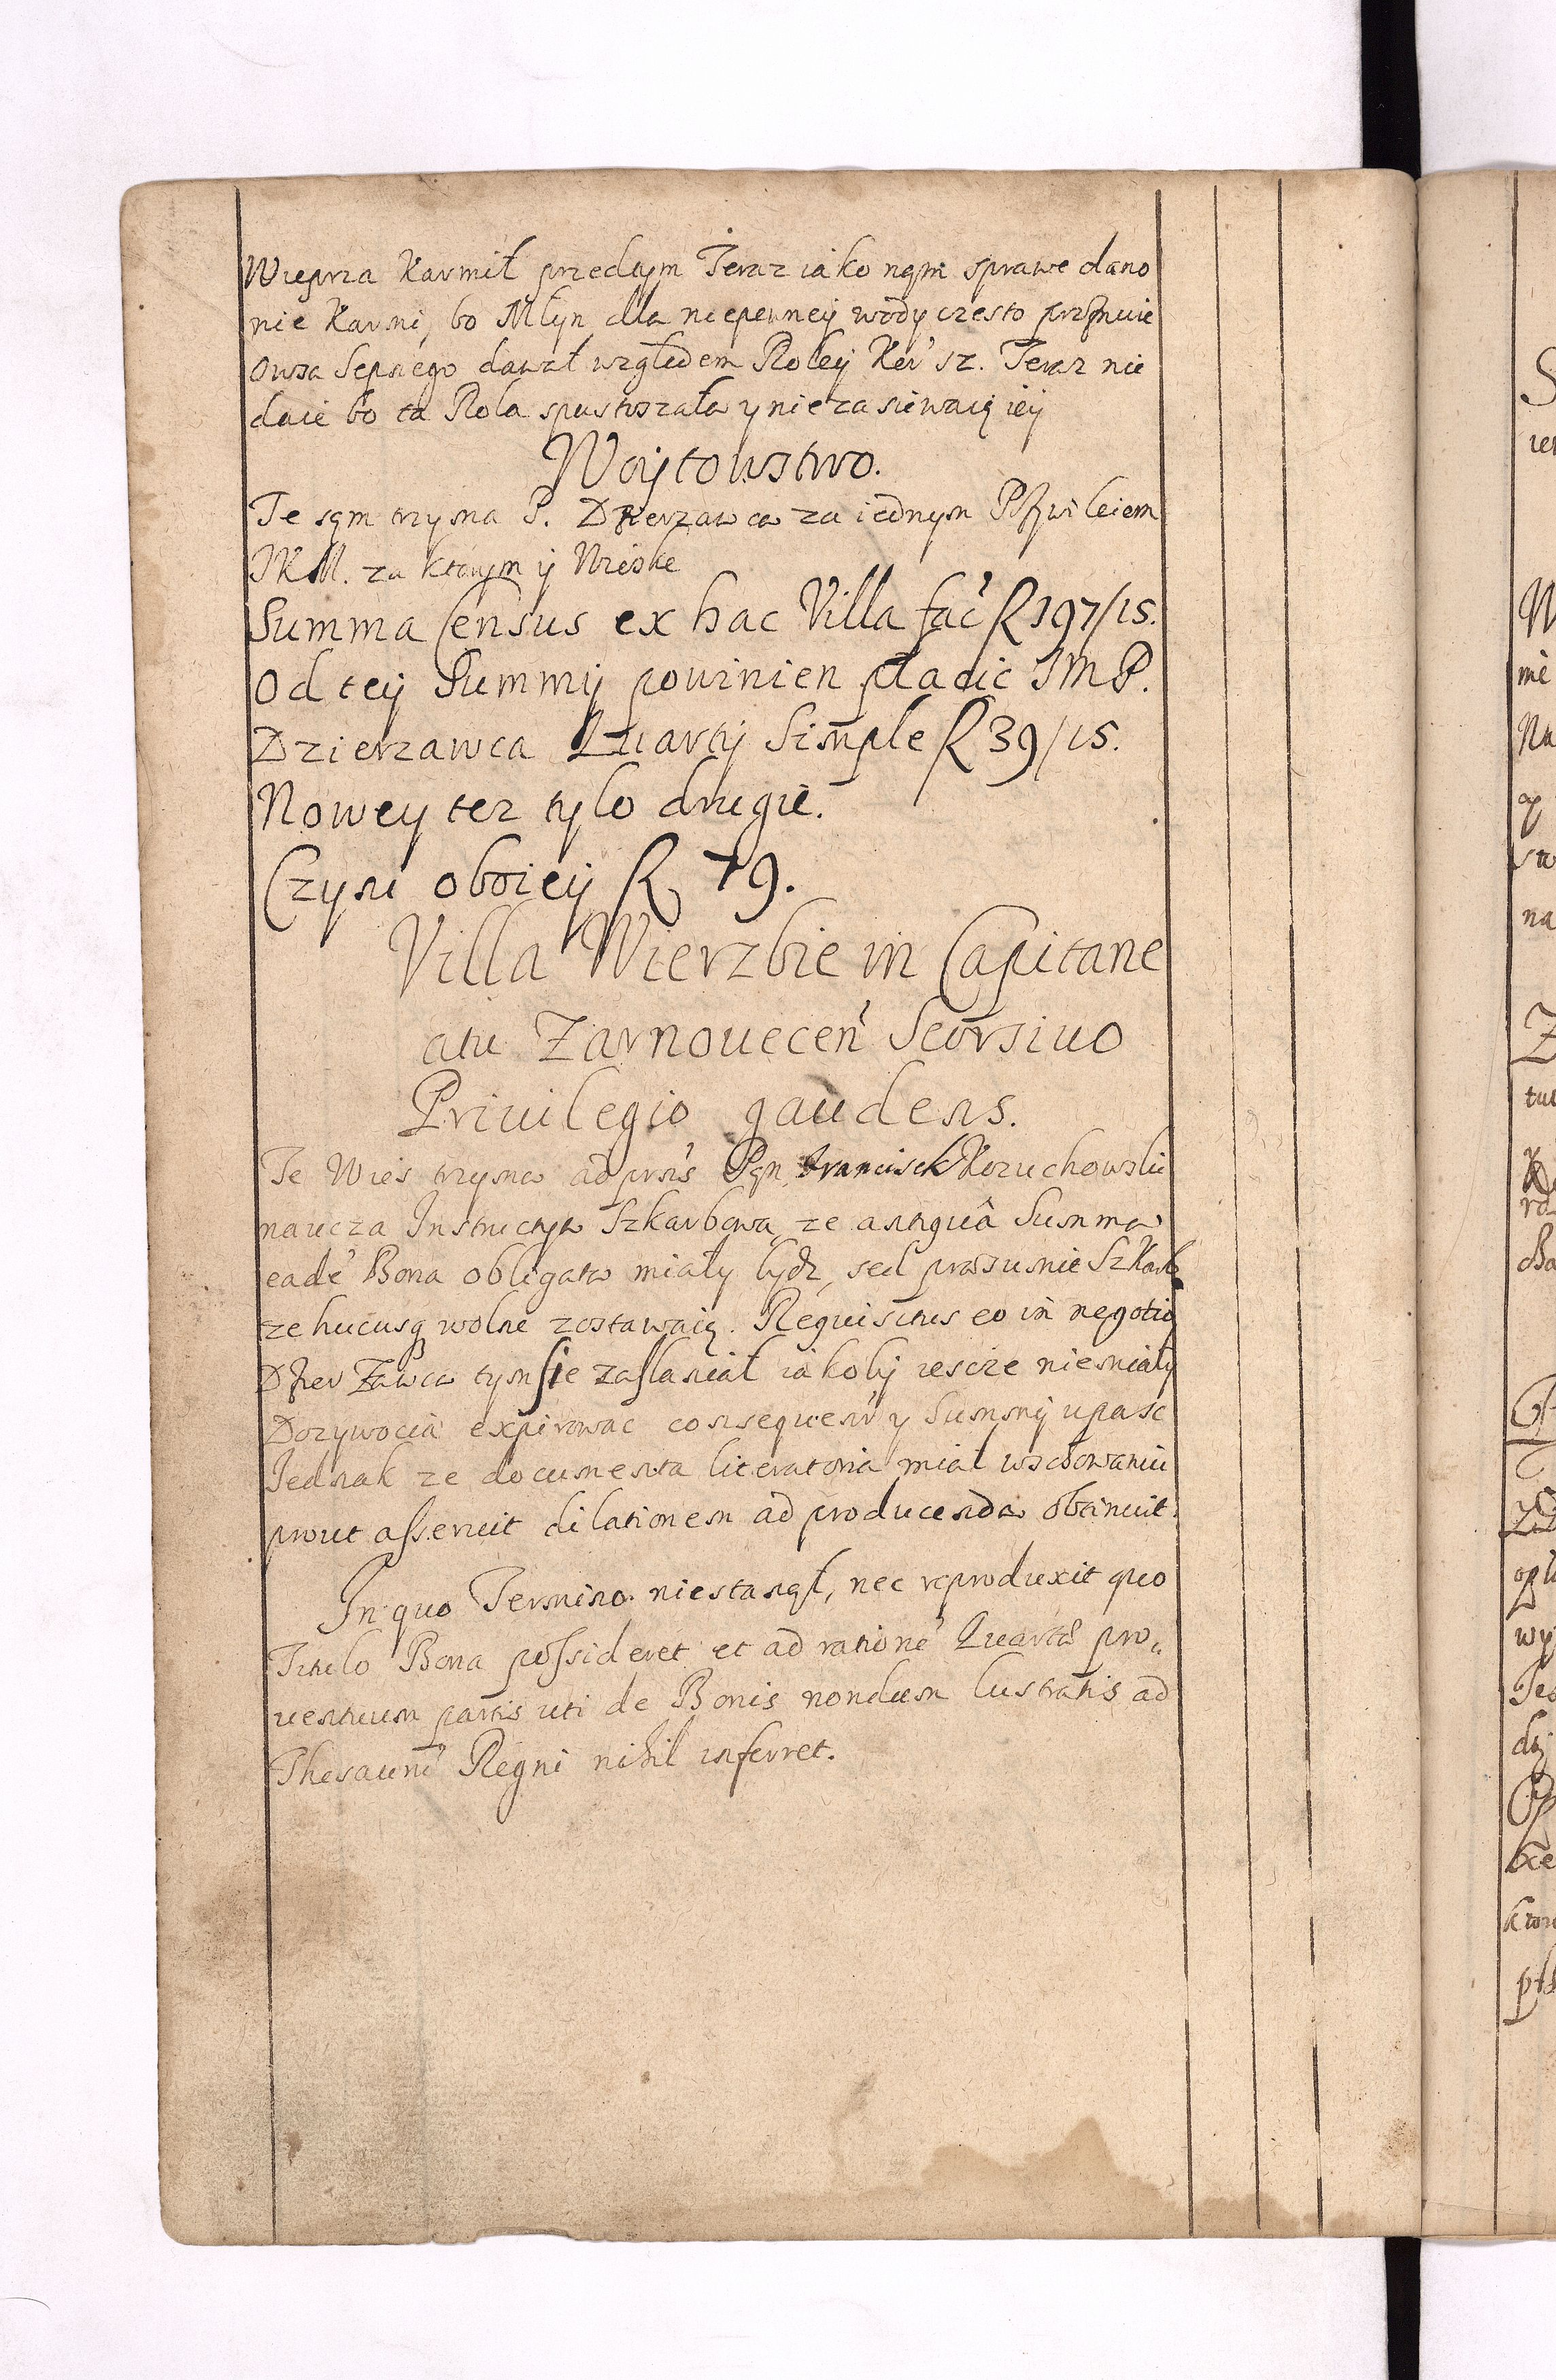 Wieprza Karmił przedtym Teraz iako nąm sprawe dano
nie Karmi, bo Młyn dla niepewney wody czesto
Owsa Sepnego dawał wzgledem Roley Kor' sz. Teraz nie
daie bo ta Rola spustoszała y nie zasiewaią iey
Woytowstwo.
Te sąm trzyma P. Dzierzawca za iednym Przywileiem
JKM. za ktorym y Wioske
Summa Census ex hac Villa fac' R 197/15.
Od tey Summy powinien płacic JMP.
Dzierzawca Quarty Simple R 39/15.
Nowey tez tylo drugie.
Czyni oboiey R 79.
Villa Wierzbie in Capitane
atu Zarnovecen' Seorsivo
Privilegio gaudens.
Te Wies trzyma ad prns Pąn Franciszek Kozuchowski
naucza Instructya Szkarbowa ze antiquâ Summa
eade' Bona obligata miały bydz, sed
ze hucusq wolne zostawaią. Requisitus eo in negotio
Dzierzawca tym sie zaslaniał iakoby iescze niemiały
Dozywocia expirowac consequen' y Summy upasc
Jednak ze documenta literatoria miał wschowaniu
prout asseruit dilationem ad producenda obtinuit.
In quo Termino niestanął, nec reproduxit quo
Titulo Bona possideret et ad ratione' Quartæ pro„
ventuum partis uti de Bonis nondum lustratis ad
Thesauru' Regni nihil inferret.